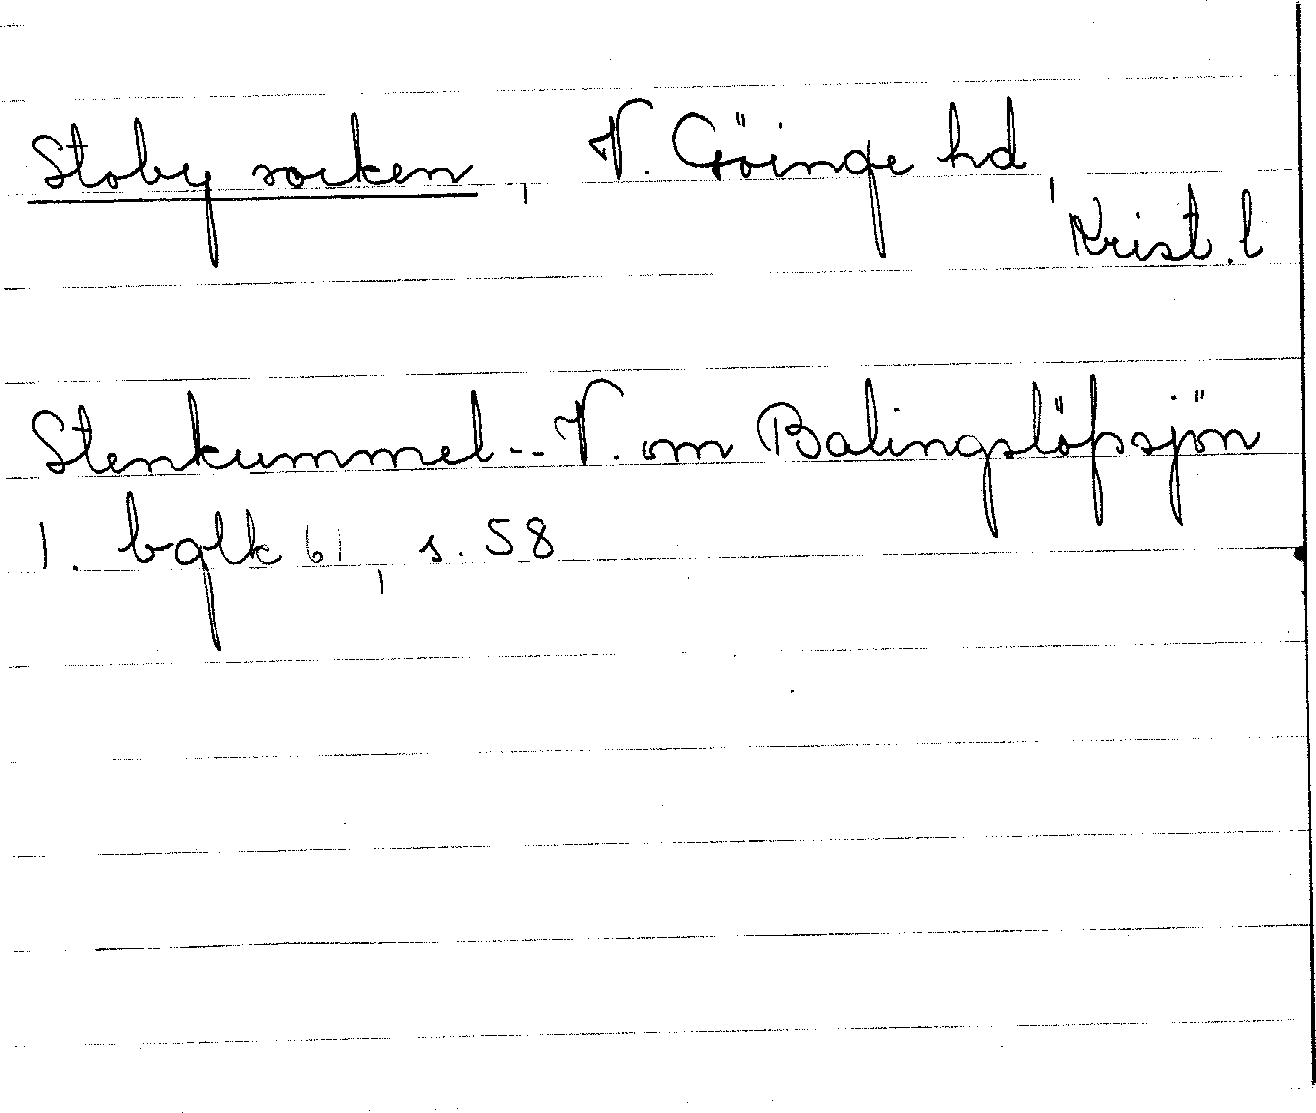 Stoby socken, V. Göinge hd,
Krist. l
Stenkummel -- V. om Ballingslöfssjön
1. bglk 61, s. 58